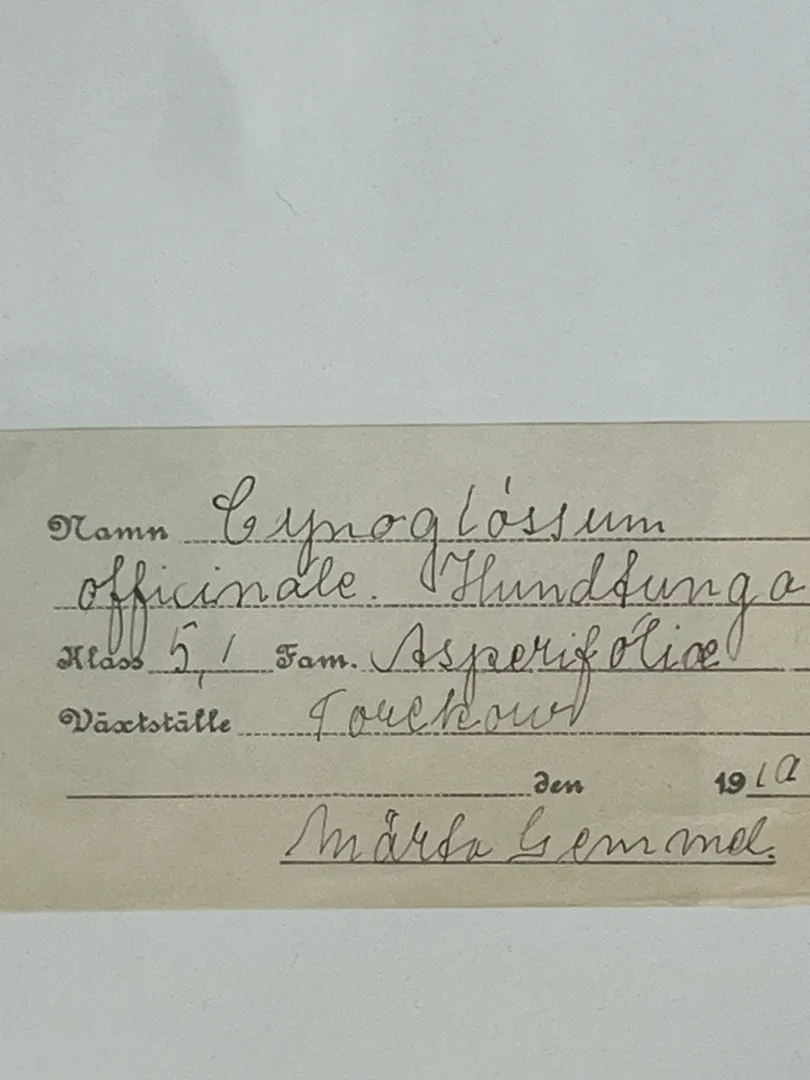 Namn Cynoglóssum
officinále. Hundtunga
Klass 5,1 Fam. Asperifóliæ
Växtställe Torekow
den 19
Märta Gemmel.